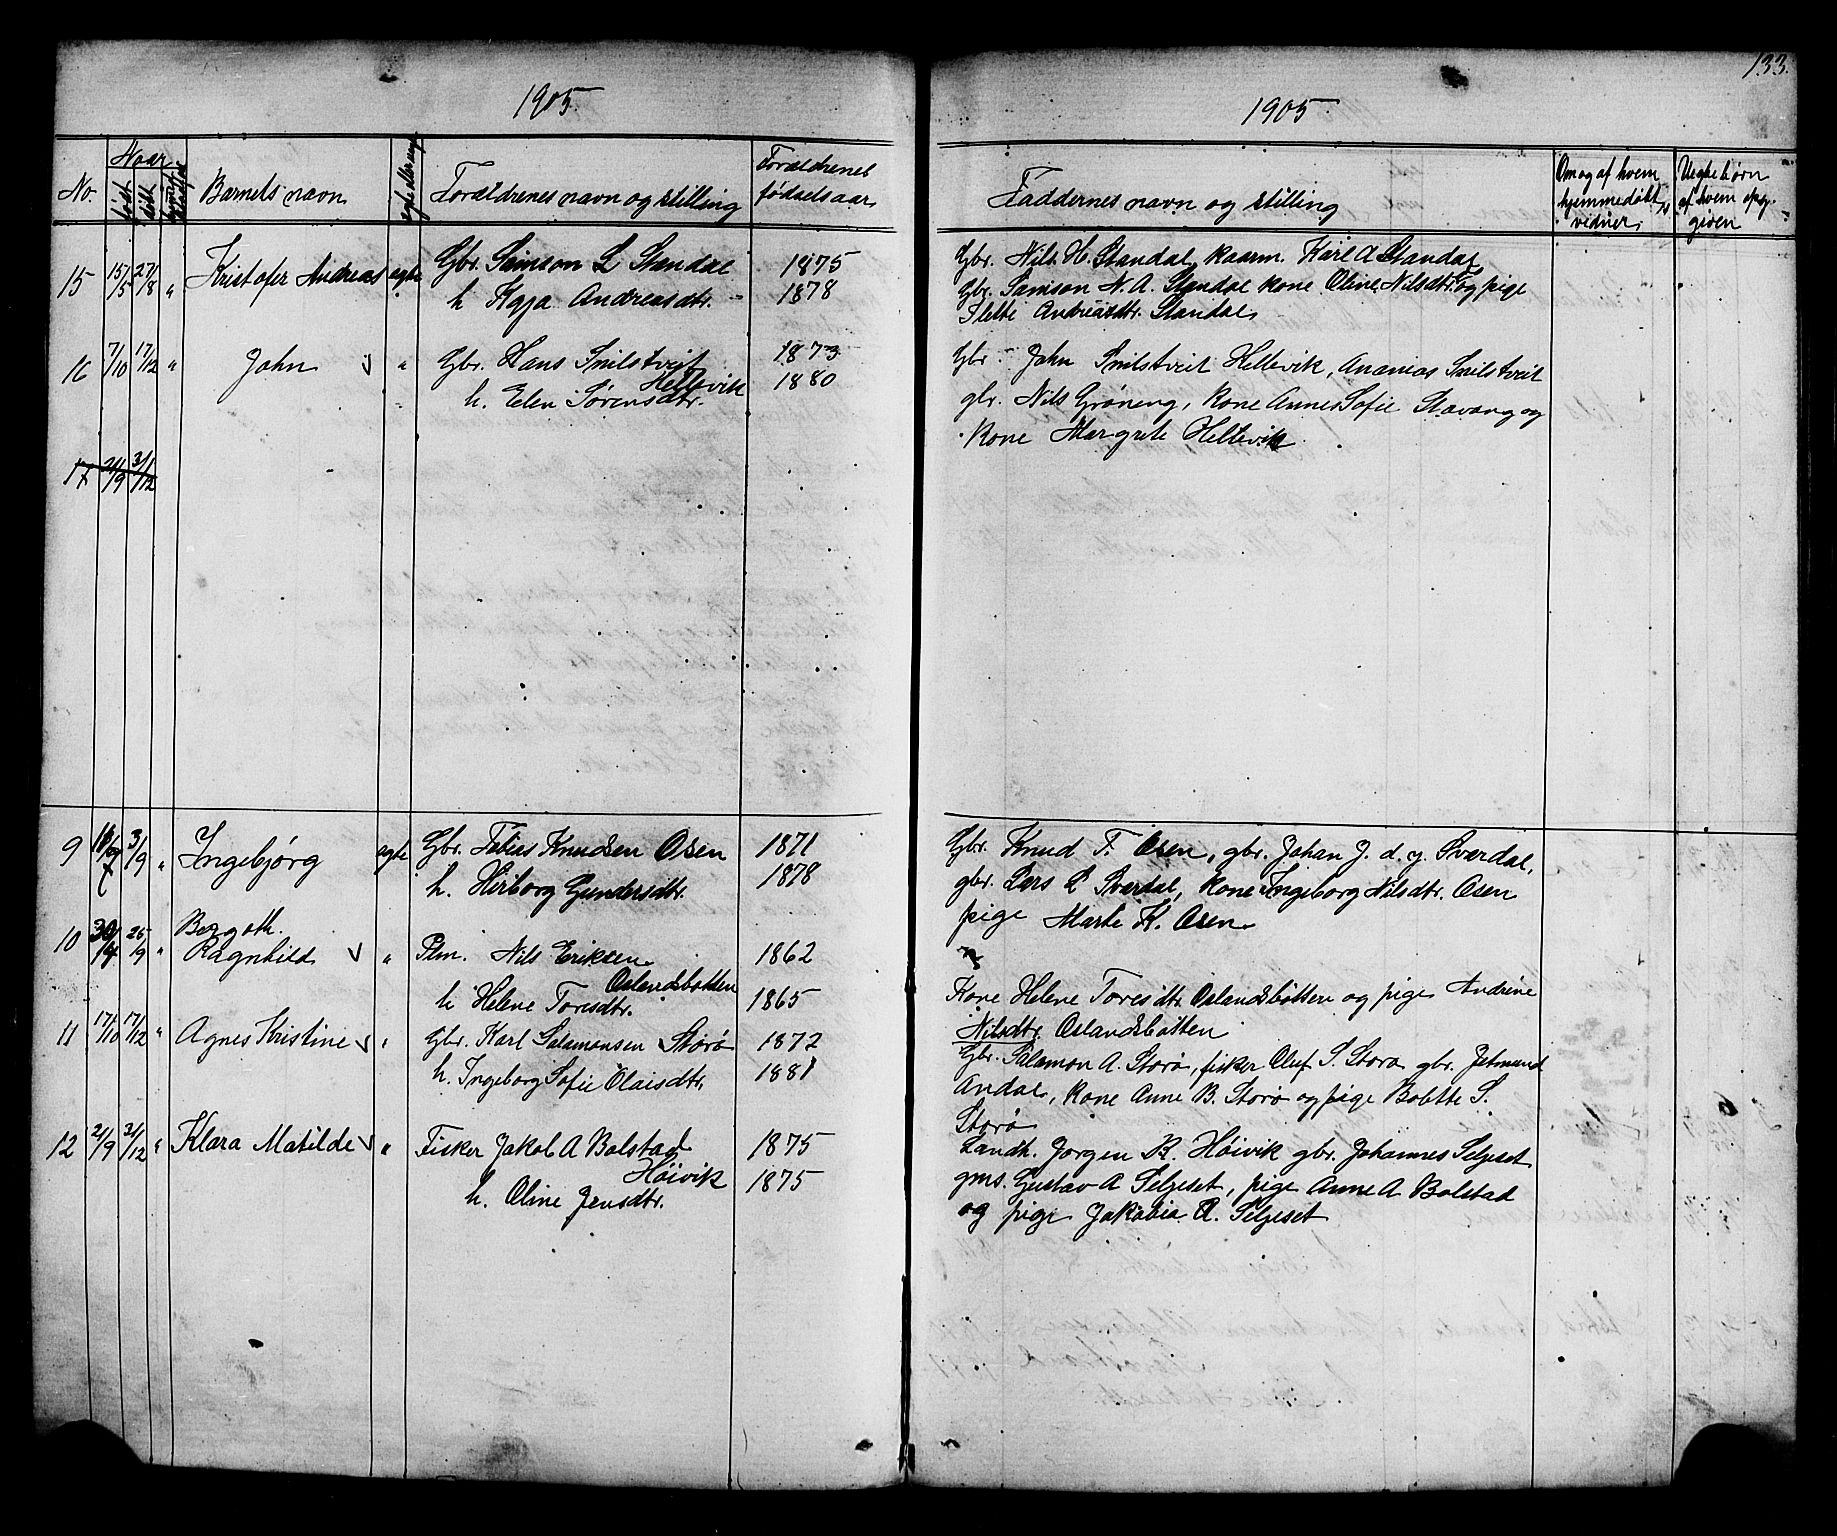 133.
1905
1905
No.
Naar
født
døbt
Barnets navn
egte eller uegte
Forældrenes navn og stilling
Forældrenes fødselsaar
Faddernes navn og stilling
Om og af hvem hjemmedøbt, vidner
Uegte børn af hvem opgiven
15 15/5 27/8 " Kristofer Andreas egte Gbr. Samson L Standal 1875
h Kaja Andreasdtr. 1878
Gbr. Nils H. Standal, kaarm. Karl A Standal,
Gbr. Samson N. A. Standal kone Oline Nilsdtr. og pige
Andreasdtr. Standal
16 7/10 17/12 " John √ " Gbr. Hans Snilstveit 1873
Hellevik
h. Elen Sørensdtr. 1880
Gbr John Snilstveit Hellevik, Ananias Snilstveit
gbr. Nils Grøneng, kone Anne Sofie Stavang og
kone Margrete Hellevik
17 2/9 3/12
9 3/9 " Ingebjørg egte Gbr. Tobias Knudsen Osen 1871
h. Herborg Gundersdtr. 1878
Gbr. Knud T. Osen, gbr. Johan J. d. y. Sværdal,
gbr. Lars L Sværdal, kone Ingeborg Nilsdtr. Osen
pige Marte K. Osen
10 25/9 " Bergoth.
Ragnhild √ " Plm. Nils Eriksen 1862
Oslandsbotten
h Helene Toresdtr. 1865
Kone Helene Toresdtr Oslandsbotten og pige Andrine
Nilsdtr. Oslandsbotten
11 17/10 17/12 " Agnes Kristine √ " Gbr. Karl Salamonsen Storø 1872
h. Ingeborg Sofie Olaisdtr. 1881
Gbr. Salamon A. Storø, fisker Oluf S. Storø gbr. Jetmund
Andal, kone Anne B. Storø og pige Bolette S.
Storø
12 2/9 3/12 " Klara Matilde √ " Fisker Jakob A Bolstad 1875
Høivik
h. Oline Jensdtr. 1875
Landh. Jørgen R. Høivik gbr. Johannes Seljeset
gms. Gustav A Seljeset, pige Anne A Bolstad
og pige Jakobia A. Seljeset